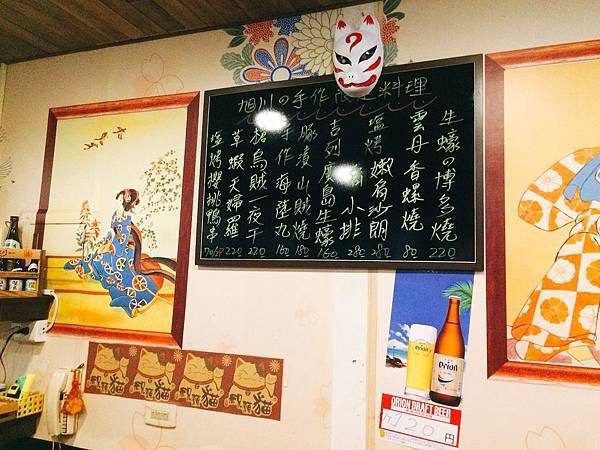 旭川の手作限定料理
生蠔の博多燒 220
雲丹香螺燒 80
鹽烤嫩肩沙朗 280
小排 280
吉列廣島生蠔 160
豚漬山賊燒 180
手作海陸丸 160
槍烏賊一夜干 220
草蝦天婦羅 220
鹽烤櫻桃鴨串
Orion
ORION DRAFT BEER
120円